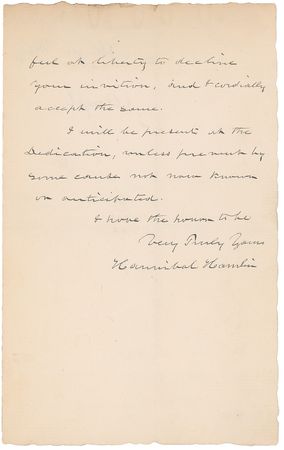 feel at liberty to decline
your invition, and I cordially
accept the same.
I will be present at the
Dedication, unless prevent by
some cause not now known
or anticipated.
I have the honor to be
Very Truly Yours
Hannibal Hamlin